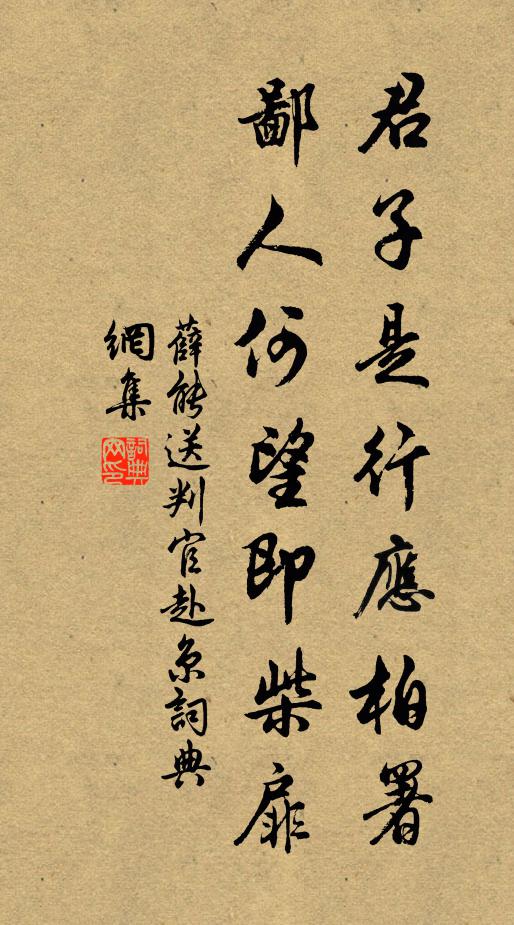 君子是行應柏署
鄙人何望即柴扉
薛能送判官赴京詞典
網集
詞典網印